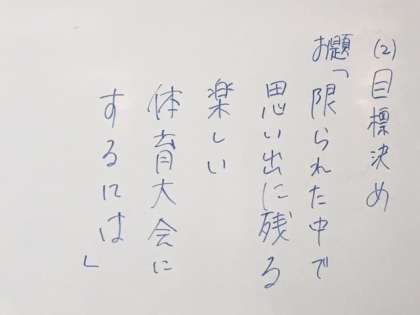 (2)目標決め
お題「限られた中で
思い出に残る
楽しい
体育大会に
するには」